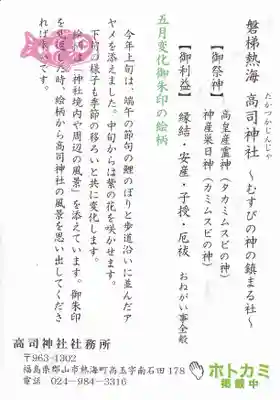 磐梯熱海 高司神社 ～むすびの神の鎮まる社～
たかつかじんじゃ
【御祭神】 高皇産霊神（タカミムスビの神）
神産巣日神（カミムスビの神）
【御利益】 縁結・安産・子授・厄祓 おねがい事全般
五月変化御朱印の絵柄
今年上旬は、端午の節句の鯉のぼりと歩道沿いに並んだア
ヤメを添えました。中旬からは紫の花を咲かせます。
下旬の様子も季節の移ろいと共に変化します。
絵柄は「神社境内や周辺の風景」を添えています。御朱印
を見返した時、絵柄から高司神社の風景を思い出してくださ
れば幸いです。
高司神社社務所
〒963-1302
福島県郡山市熱海町高玉字南石田178
電話 024-984-3316
ホトカミ
掲載中